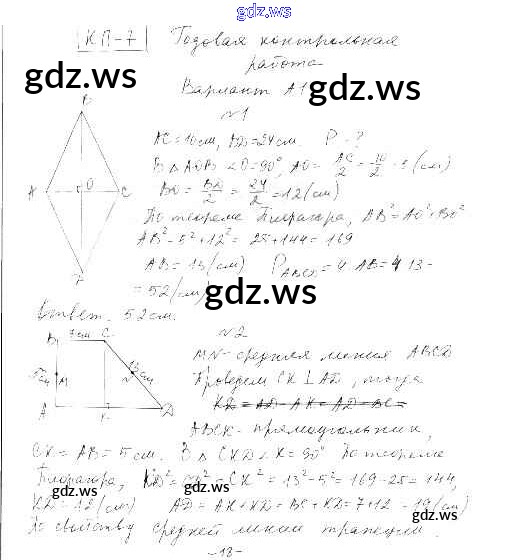 gdz.ws
КП-7 Годовая контрольная
работа
gdz.ws gdz.ws
Вариант А1
№1
B
AC=10см, BD=24см. P-?
В △AOB ∠O=90°, AO=AC/2=10/2=5(см)
A O C
BO=BD/2=24/2=12(см)
По теореме Пифагора, AB²=AO²+BO²
AB²=5²+12²=25+144=169
AB=13(см) P ABCD=4·AB=4·13=
=52(см)
gdz.ws
Ответ: 52см.
№2
B 7см C
MN-средняя линия ABCD
Проведем CK⊥AD, тогда
5см M N 13см
KD=AD-AK=AD-BC=
A K D
ABCK-прямоугольник,
CK=AB=5см. В △CKD ∠K=90° По теореме
Пифагора, KD²=CD²-CK²=13²-5²=169-25=144,
gdz.ws gdz.ws
KD=12(см) AD=AK+KD=BC+KD=7+12=19(см)
По свойству средней линии трапеции
gdz.ws
-18-